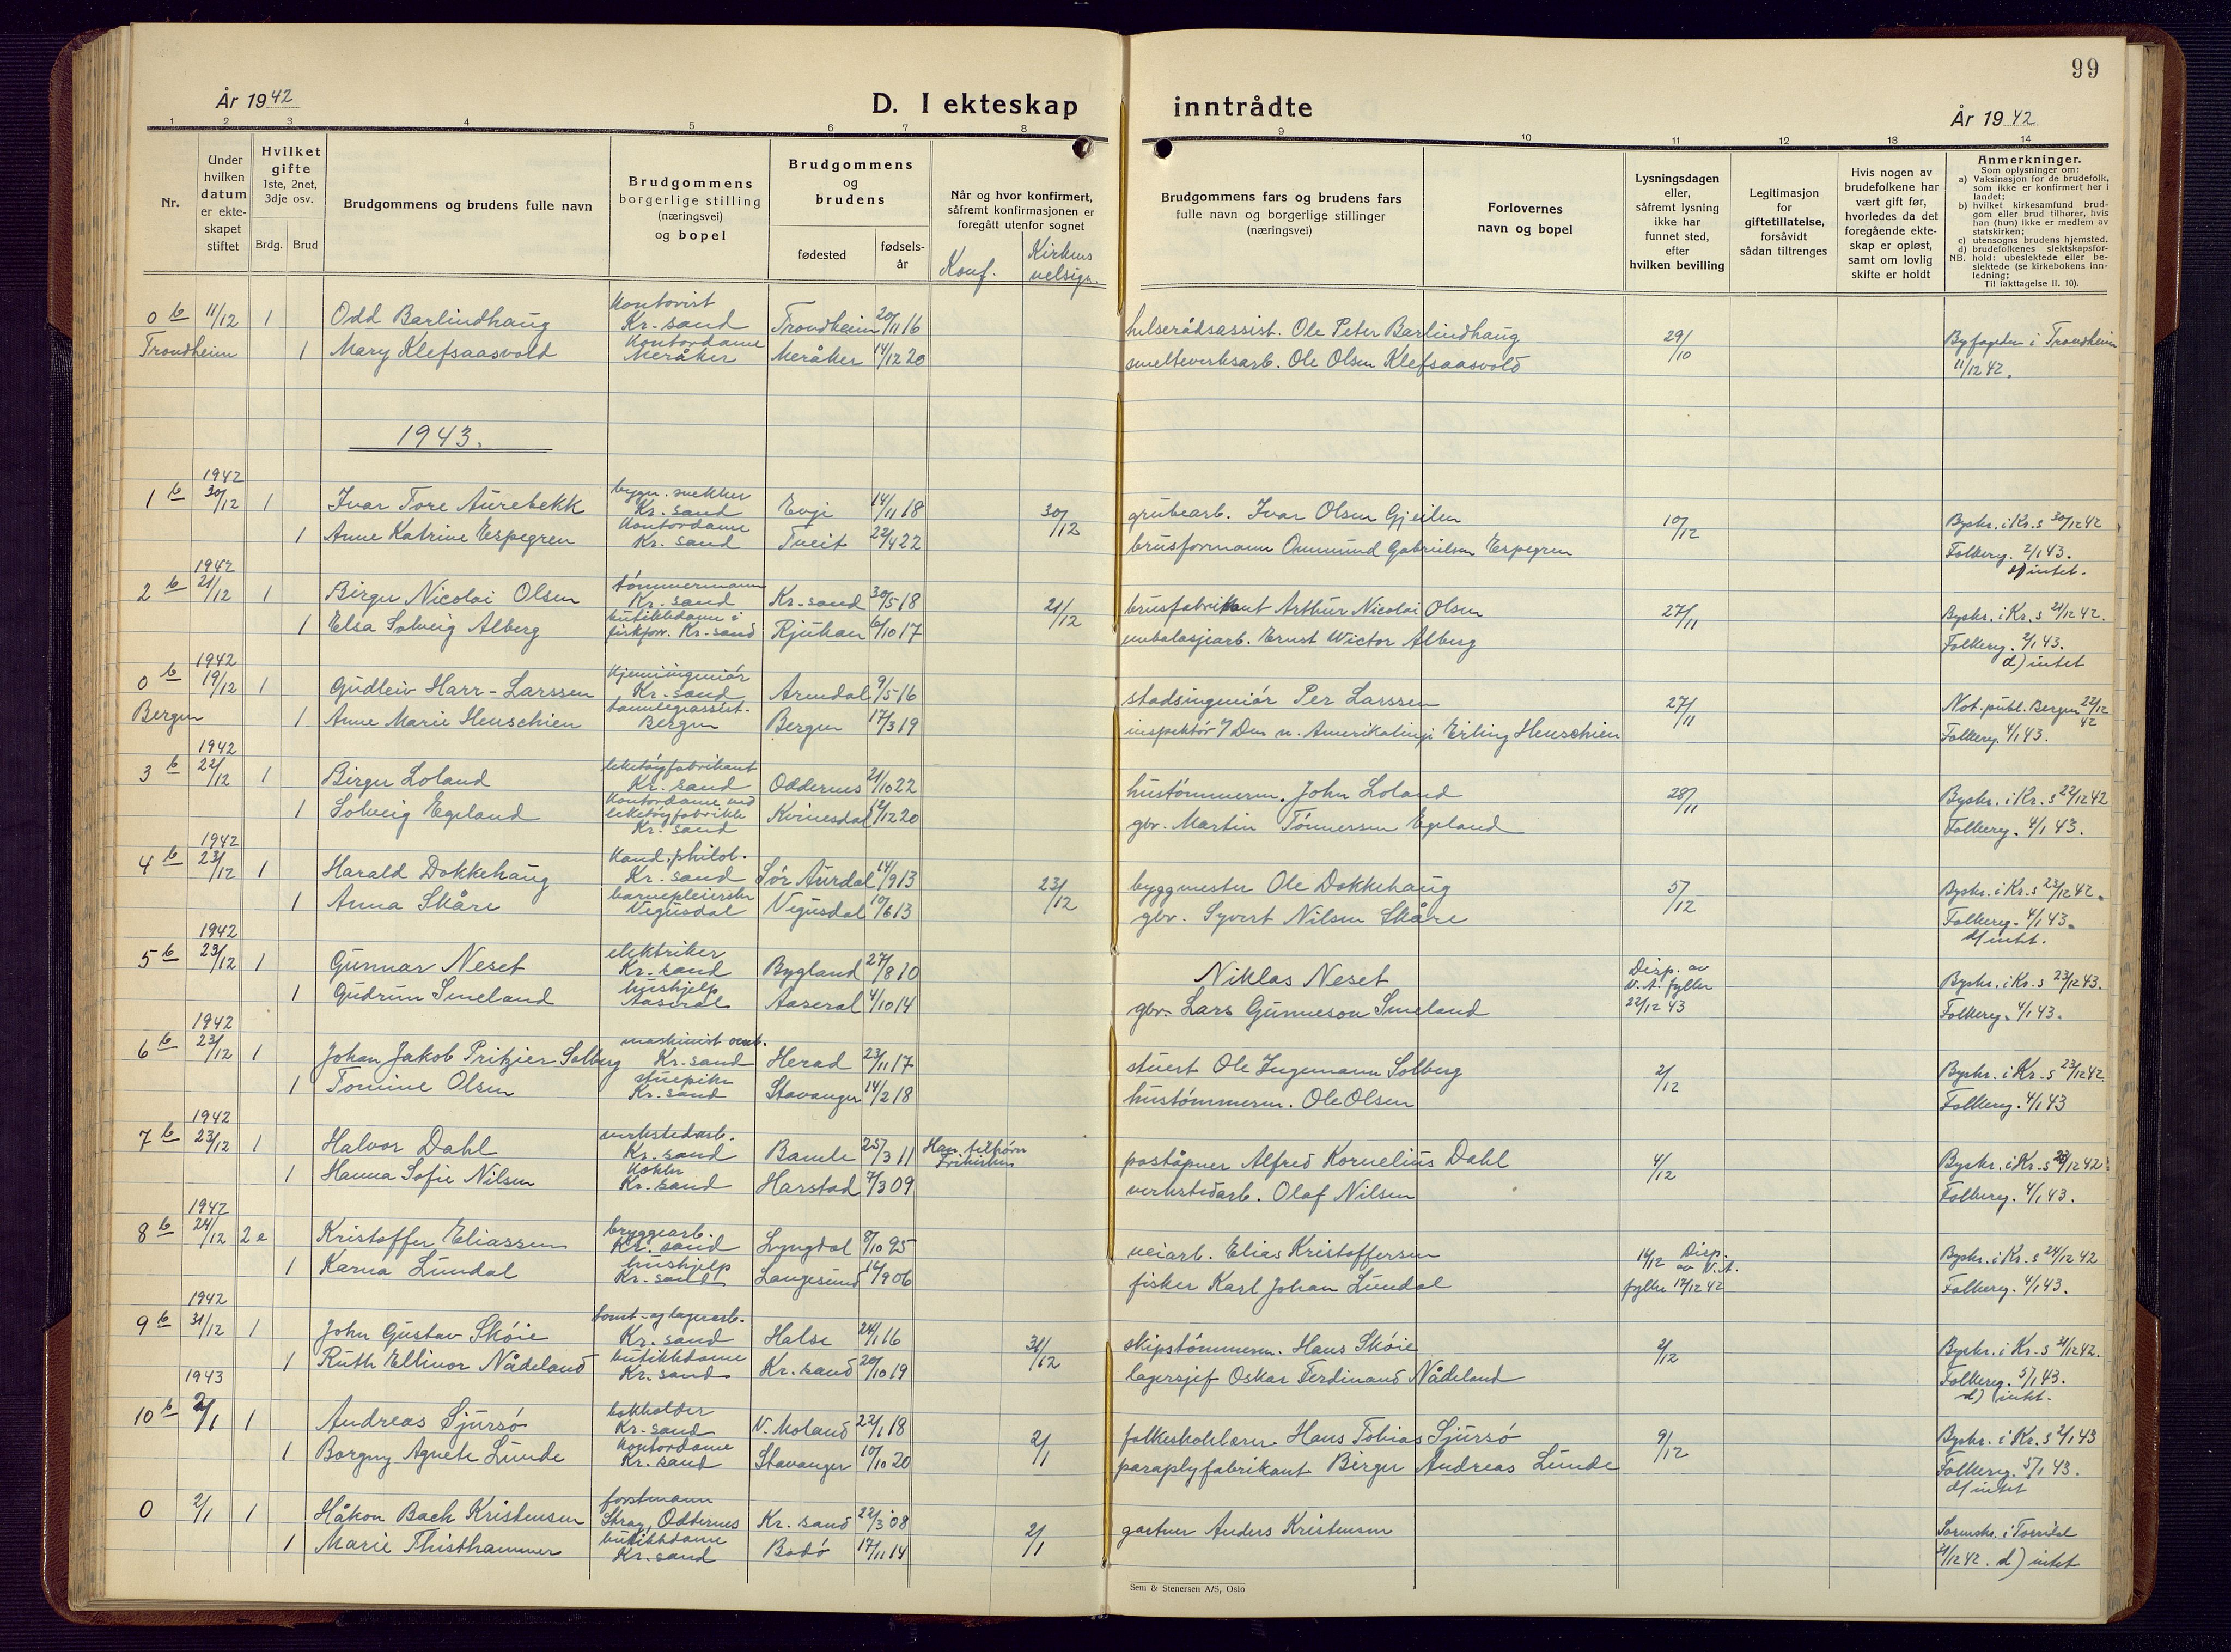 99
År 1942
D. I ekteskap inntrådte
År 1942
1 2 3 4 5 6 7 8 9 10 11 12 13 14
Nr.
Under hvilken datum er ekte-skapet stiftet
Hvilket gifte 1ste, 2net, 3dje osv.
Brdg. Brud
Brudgommens og brudens fulle navn
Brudgommens borgerlige stilling (næringsvei) og bopel
Brudgommens og brudens
fødested
fødsels-år
Når og hvor konfirmert, såfremt konfirmasjonen er foregått utenfor sognet
Konf.
Kirkens velsign.
Brudgommens fars og brudens fars fulle navn og borgerlige stillinger (næringsvei)
Forlovernes navn og bopel
Lysningsdagen eller, såfremt lysning ikke har funnet sted, efter hvilken bevilling
Legitimasjon for giftetillatelse, forsåvidt sådan tiltrenges
Hvis nogen av brudefolkene har vært gift før, hvorledes da det foregående ekte-skap er opløst, samt om lovlig skifte er holdt
Anmerkninger.
Som oplysninger om:
a) Vaksinasjon for de brudefolk, som ikke er konfirmert her i landet;
b) hvilket kirkesamfund brud-gom eller brud tilhører, hvis han (hun) ikke er medlem av statskirken;
c) utensogns brudens hjemsted.
d) brudefolkenes slektskapsfor-
NB. hold: ubeslektede eller be-slektede (se kirkebokens inn-ledning; Til iakttagelse II. 10).
0 b 11/12 1 Odd Barlindhaug kontorist Kr.sand Trondheim 20/11 16 helserådsassist. Ole Peter Barlindhaug 29/10 Byfogden i Trondheim
Trondheim 1 Mary Klefsaasvold kontordame Meråker Meråker 14/12 20 smelteverksarb. Ole Olsen Klefsaasvold 11/12 42.
1943.
1942
1 b 30/12 1 Ivar Tore Aurebekk bygn. snekker Kr.sand Evje 14/11 18 30/12 grubearb. Ivar Olsen Gjeilen 10/12 Byskr. i Kr.s 30/12 42
1 Anne Katrine Espegren kontordame Kr.sand Tveit 22/4 22 brusformann Ommund Gabrielsen Espegren Folkereg. 2/1 43.
d) intet.
1942
2 b 21/12 1 Birger Nicolai Olsen tømmermann Kr.sand Kr.sand 30/5 18 21/12 brusfabrikant Arthur Nicolai Olsen 27/11 Byskr. i Kr.s 21/12 42.
1 Elsa Solveig Alberg butikkdame i fiskforr. Kr.sand Rjukan 6/10 17 embalasjearb. Ernst Wictor Alberg Folkereg. 2/1 43.
d) intet
1942
0 b 19/12 1 Gudleiv Harr-Larssen kjemiingeniør Kr.sand Arendal 9/5 16 stadsingeniør Per Larssen 27/11 Not. publ. Bergen 22/12 42
Bergen 1 Anne Marie Henschien tannlegeassist. Bergen Bergen 17/3 19 inspektør i Den n. Amerikalinje Erling Henschien Folkereg. 4/1 43.
1942
3 b 22/12 1 Birger Loland leketøyfabrikant Kr.sand Oddernes 21/10 22 hustømmerm. John Loland 28/11 Byskr. i Kr.s 22/12 42
1 Solveig Egeland kontordame ved leketøyfabrikk Kr.sand Kvinesdal 12/12 20 gbr. Martin Tønnersen Egeland Folkereg. 4/1 43.
1942
4 b 23/12 1 Harald Dokkehaug kand. philol. Kr.sand Sør Aurdal 14/9 13 23/12 byggmester Ole Dokkehaug 5/12 Byskr. i Kr.s 23/12 42.
1 Anna Skåre barnepleierske Vegusdal Vegusdal 10/6 13 gbr. Syvert Nilsen Skåre Folkereg. 4/1 43.
d) intet.
1942
5 b 23/12 1 Gunnar Neset elektriker Kr.sand Bygland 27/8 10 Niklas Neset Disp. av V.A. fylke 22/12 43 Byskr. i Kr.s 23/12 43.
1 Gudrun Smeland hushjelp Aaseral Aaseral 4/10 14 gbr. Lars Gunneson Smeland Folkereg. 4/1 43.
1942
6 b 23/12 1 Johan Jakob Pritzier Solberg maskinist Kr.sand Herad 23/11 17 stuert Ole Ingemann Solberg 2/12 Byskr. i Kr.s 23/12 42
1 Tomine Olsen stuepike Kr.sand Stavanger 14/2 18 hustømmerm. Ole Olsen Folkereg. 4/1 43
1942
7 b 23/12 1 Halvor Dahl verkstedarb. Kr.sand Bamle 25/3 11 Han tilhører Frikirken poståpner Alfred Kornelius Dahl 4/12 Byskr. i Kr.s 23/12 42
1 Hanna Sofie Nilsen kokke Kr.sand Harstad 7/3 09 verkstedarb. Olaf Nilsen Folkereg. 4/1 43.
1942
8 b 24/12 2e Kristoffer Eliassen bryggearb. Kr.sand Lyngdal 8/10 95 veiarb. Elias Kristoffersen 16/12 Disp. av V.A. Byskr. i Kr.s 24/12 42
1 Karna Lundal hushjelp Kr.sand Langesund 16/9 06 fisker Karl Johan Lundal fylke 17/12 42 Folkereg. 4/1 43.
1942
9 b 31/12 1 John Gustav Skøie tomt- og lagerarb. Kr.sand Halse 24/1 16 31/12 skipstømmerm. Hans Skøie 2/12 Byskr. i Kr.s 31/12 42.
1 Ruth Ellinor Nådeland butikkdame Kr.sand Kr.sand 20/10 19 lagersjef Oskar Ferdinand Nådeland Folkereg. 5/1 43.
d) intet.
1943
10 b 2/1 1 Andreas Sjursø bokholder Kr.sand V. Moland 22/1 18 2/1 folkeskolelærer Hans Tobias Sjursø 9/12 Byskr. i Kr.s 2/1 43
1 Borgny Agnete Lunde kontordame Kr.sand Stavanger 10/10 20 paraplyfabrikant Birger Andreas Lunde Folkereg. 5/1 43.
d) intet
0 2/1 1 Håkon Bach Kristensen forstmann Stray, Oddernes Kr.sand 22/3 08 2/1 gartner Anders Kristensen Sorenskr. i Torridal
1 Marie Thisthammer butikkdame Kr.sand Bodø 17/11 14 31/12 42. d) intet
Sem & Stenersen A/S, Oslo